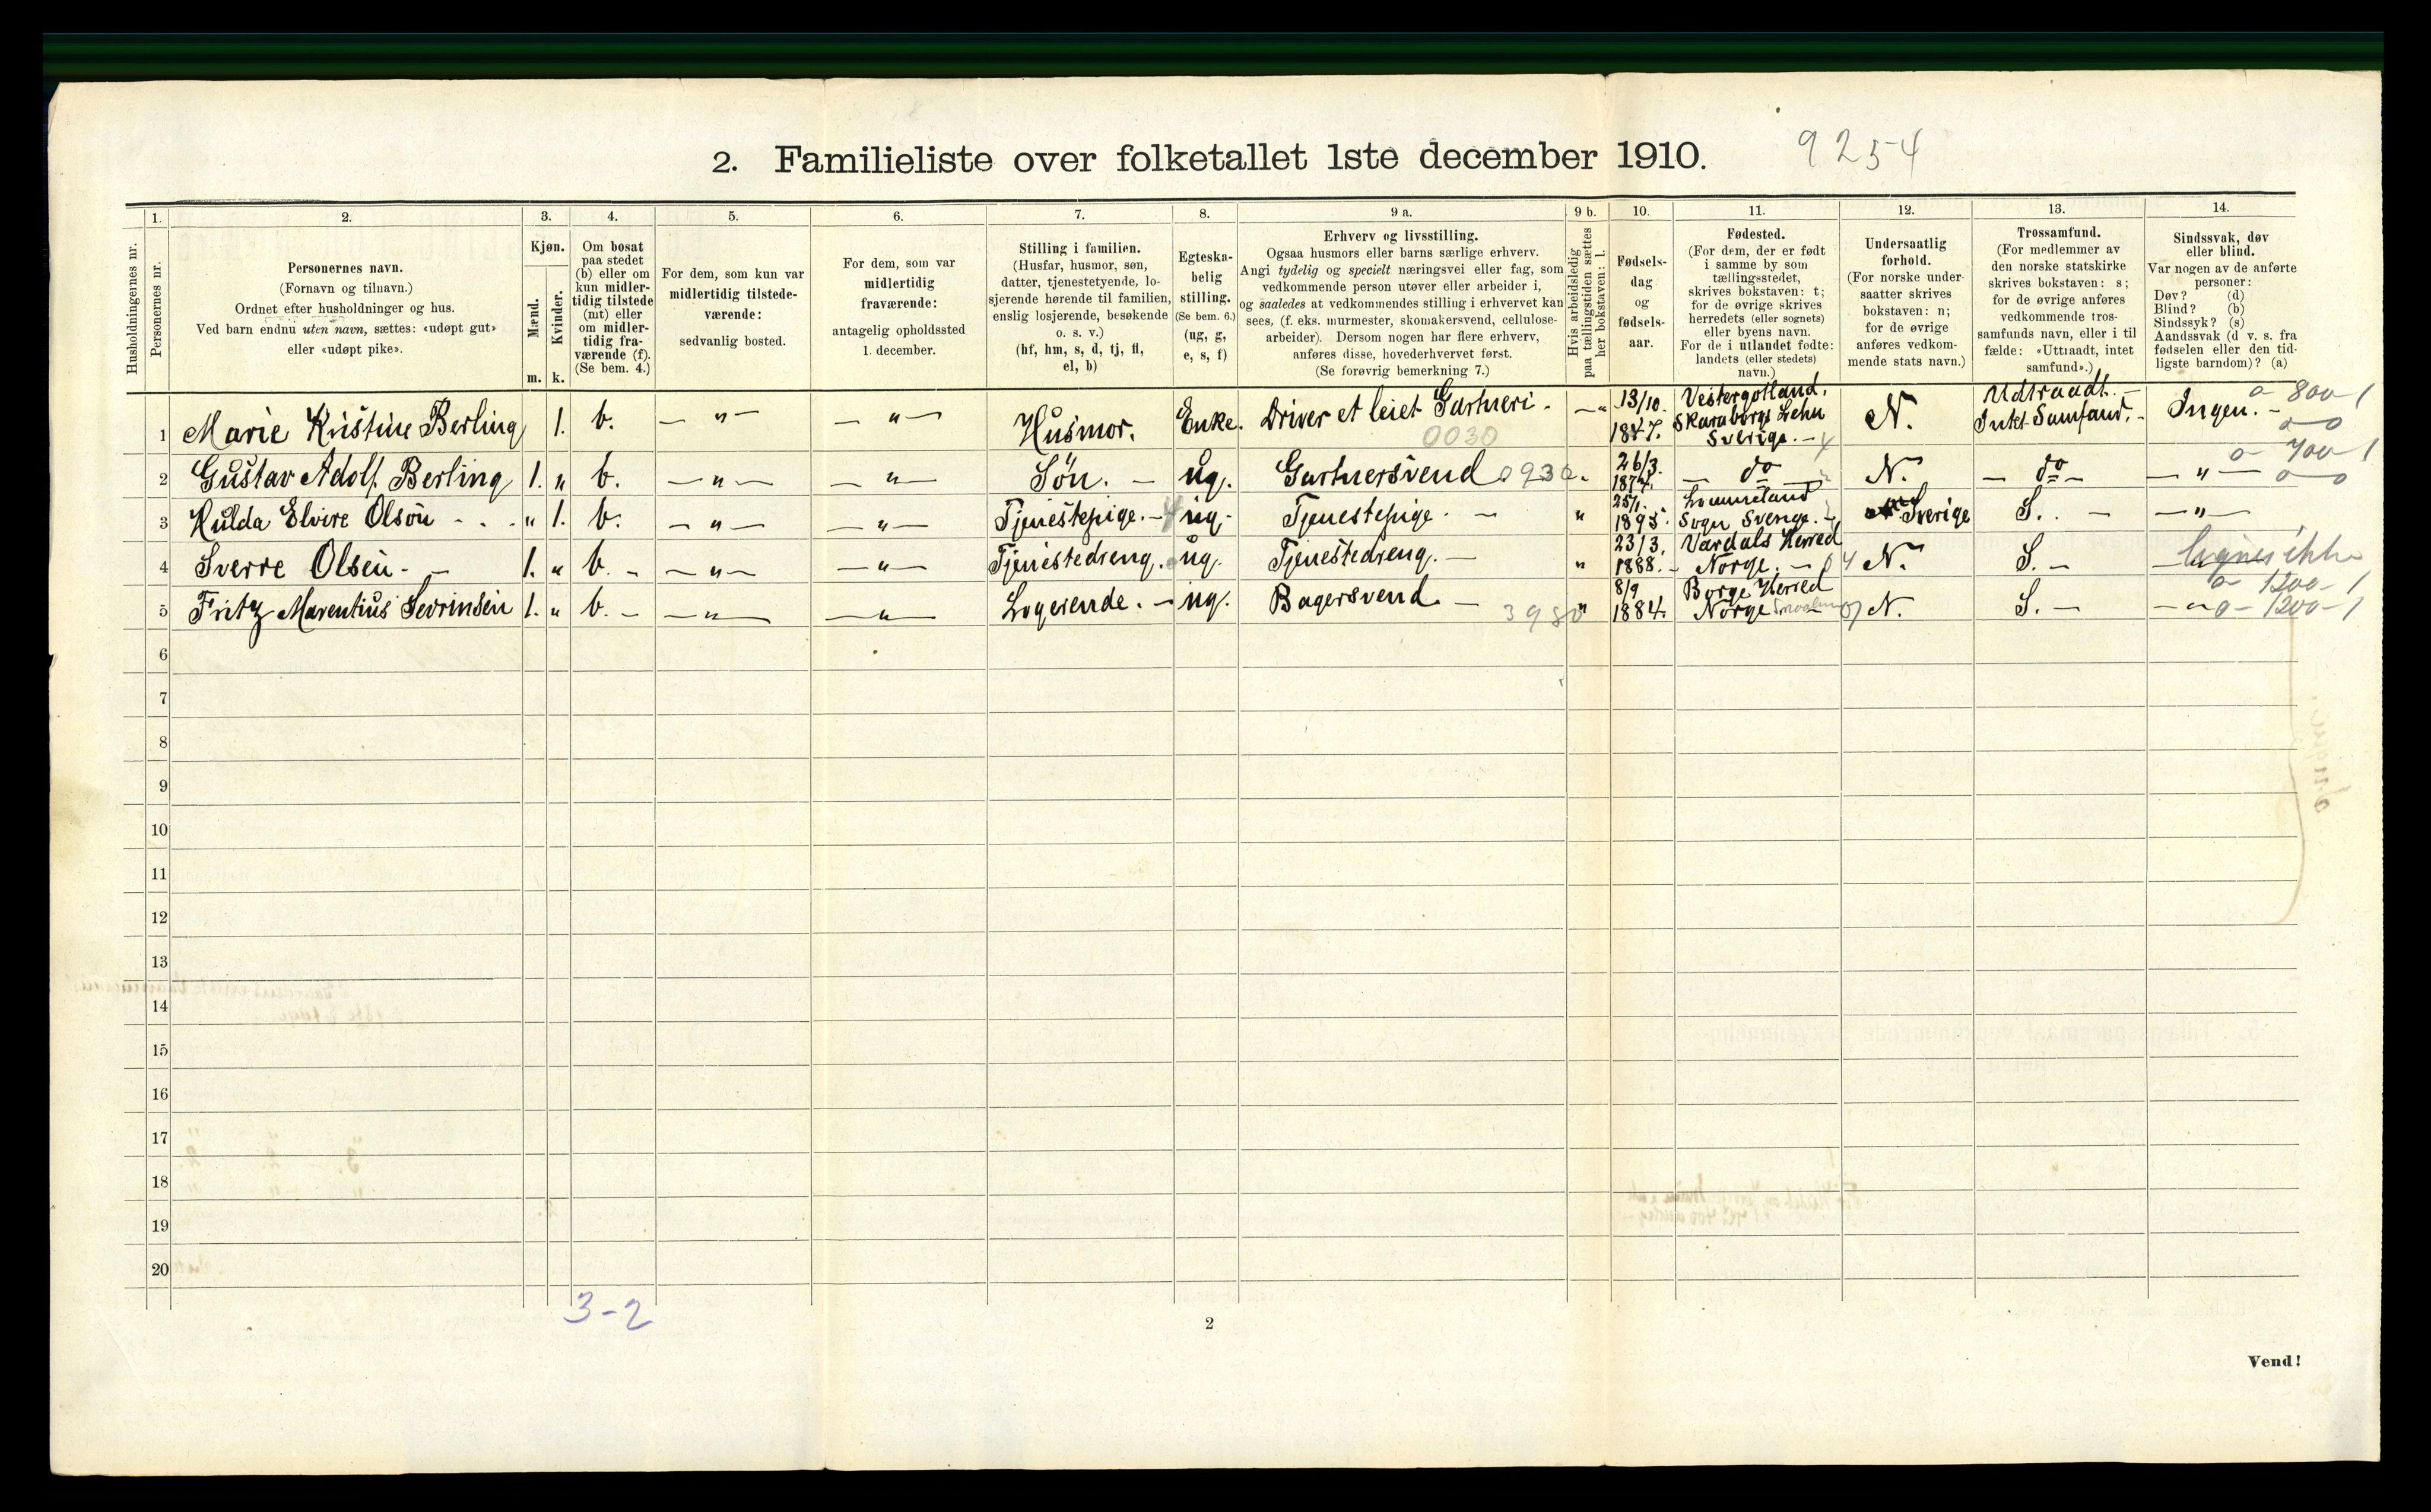 2. Familieliste over folketallet 1ste december 1910. 9254
Husholdningernes nr.
1.
Personernes nr.
2.
Personernes navn.
(Fornavn og tilnavn.)
Ordnet efter husholdninger og hus.
Ved barn endnu uten navn, sættes: «udøpt gut»
eller «udøpt pike».
3.
Kjøn.
Mænd.
Kvinder.
m. k.
4.
Om bosat
paa stedet
(b) eller om
kun midler-
tidig tilstede
(mt) eller
om midler-
tidig fra-
værende (f).
(Se bem. 4.)
5.
For dem, som kun var
midlertidig tilstede-
værende:
sedvanlig bosted.
6.
For dem, som var
midlertidig
fraværende:
antagelig opholdssted
1. december.
7.
Stilling i familien.
(Husfar, husmor, søn,
datter, tjenestetyende, lo-
sjerende hørende til familien,
enslig losjerende, besøkende
o. s. v.)
(hf, hm, s, d, tj, fl,
el, b)
8.
Egteska-
belig
stilling.
(Se bem. 6.)
(ug, g,
e, s, f)
9 a.
Erhverv og livsstilling.
Ogsaa husmors eller barns særlige erhverv.
Angi tydelig og specielt næringsvei eller fag, som
vedkommende person utøver eller arbeider i,
og saaledes at vedkommendes stilling i erhvervet kan
sees, (f. eks. murmester, skomakersvend, cellulose-
arbeider). Dersom nogen har flere erhverv,
anføres disse, hovederhvervet først.
(Se forøvrig bemerkning 7.)
9 b.
Hvis arbeidsledig
paa tællingstiden sættes
her bokstaven: l.
10.
Fødsels-
dag
og
fødsels-
aar.
11.
Fødested.
(For dem, der er født
i samme by som
tællingsstedet,
skrives bokstaven: t;
for de øvrige skrives
herredets (eller sognets)
eller byens navn.
For de i utlandet fødte:
landets (eller stedets)
navn.)
12.
Undersaatlig
forhold.
(For norske under-
saatter skrives
bokstaven: n;
for de øvrige
anføres vedkom-
mende stats navn.)
13.
Trossamfund.
(For medlemmer av
den norske statskirke
skrives bokstaven: s;
for de øvrige anføres
vedkommende tros-
samfunds navn, eller i til-
fælde: «Uttraadt, intet
samfund».)
14.
Sindssvak, døv
eller blind.
Var nogen av de anførte
personer:
Døv? (d)
Blind? (b)
Sindssyk? (s)
Aandssvak (d v. s. fra
fødselen eller den tid-
ligste barndom)? (a)
1 Marie Kristine Berling 1. b. — " — — " — Husmor. Enke. Driver et leiet Gartneri. — " 13/10. 1847. Vestergötland, Skaraborgs Lehn Sverige. — N. Udtraadt. — Intet Samfund. — Ingen. — o - 800 - 1
0030
2 Gustav Adolf Berling 1. " b. — " — — " — Søn. — ug. Gartnersvend 0930. 26/3. 1874. — do — N. — do — — " — o - 700 - 1
3 Hulda Elvire Olson - . . " 1. b. — " — — " — Tjenestepige. — ug. Tjenestepige. — " 25/1. 1895. Lommeland Sogn Sverige. — Sverige S. . — — " —
4 Sverre Olsen - — 1. " b. — — " — — " — Tjenestedreng. ug. Tjenestedreng. — " 23/3. 1888. — Vardals Herred Norge. — 04 N. S. — Lignes ikke
5 Fritz Marentius Sevrinsen 1. " b. — — " — — " — Logerende. — ug. Bagersvend. — 3980 " 8/9 1884. Borge Herred Norge N. S. — — " — o - 1200 - 1
o - 1200 - 1
6
7
8
9
10
11
12
13
14
15
16
17
18
19
20
3-2
2
Vend!